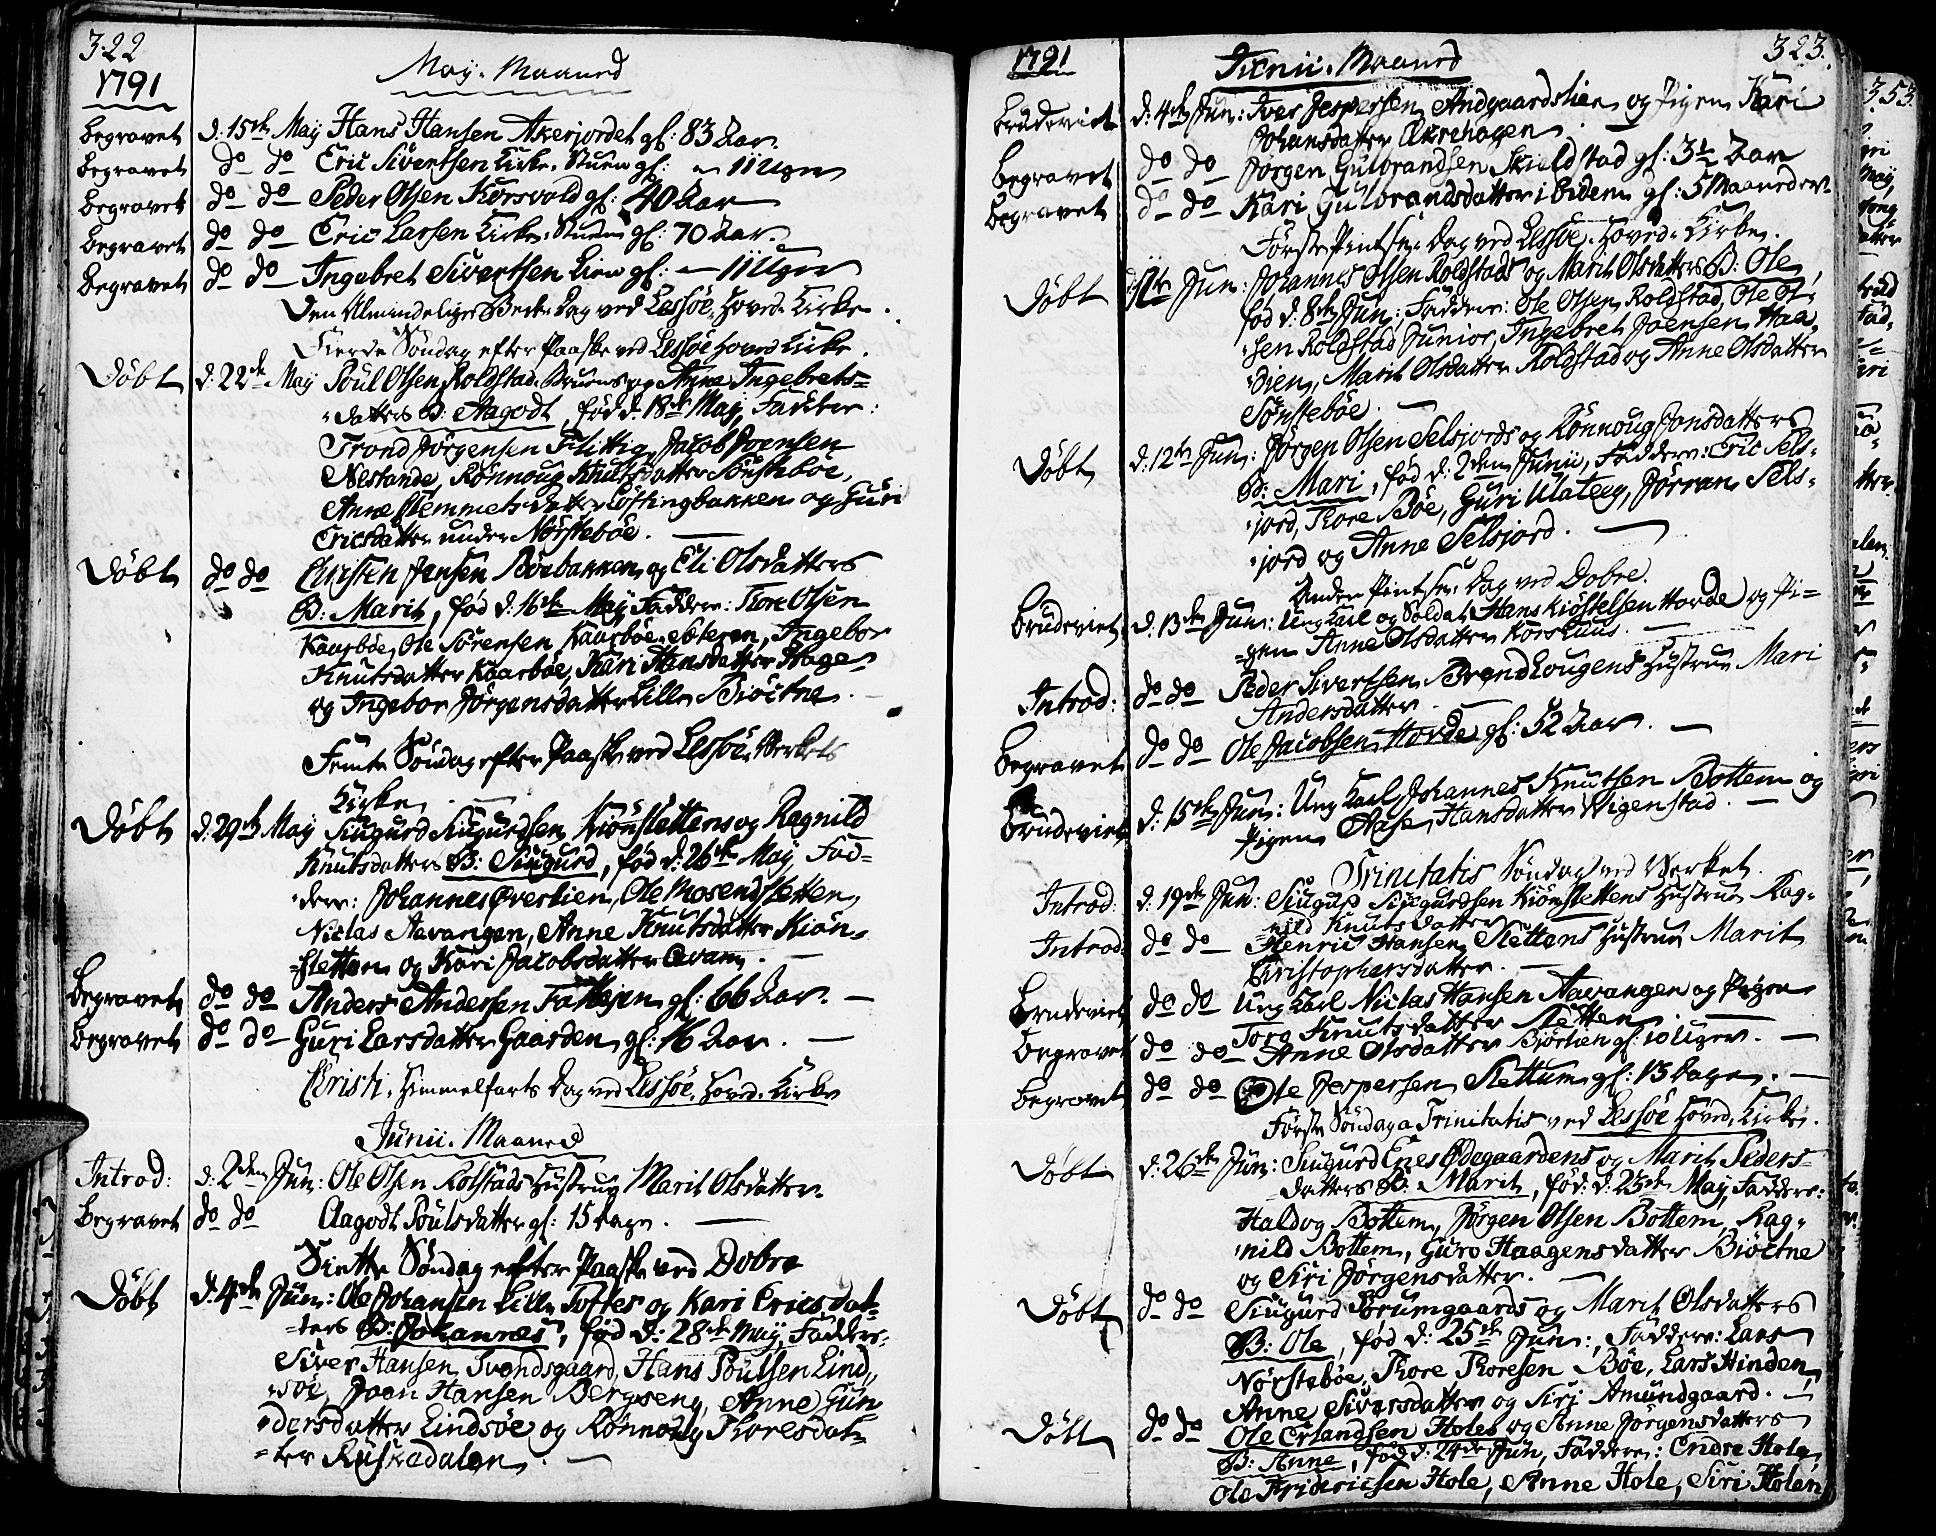 322
1791
May. Maaned
Begravet d: 15de May Hans Hansen Akerjordet gl: 83 Aar.
Begravet do do Eric Sivertsen Kirke-Stuen gl: 11 Uger
Begravet do do Peder Olsen Korsvold gl: 40 Aar
Begravet do do Eric Larsen Kirke-Stuen gl: 70 Aar.
Begravet do do Ingebret Sivertsen Lien gl: 11 Uger
Den Almindelige Bede-Dag ved Lessøe Hoved-Kirke.
Fierde Søndag efter Paaske ved Lessøe Hoved Kirke.
Døbt d: 22de May Poul Olsen Roldstad-Bruens og Anne Ingebrets-
datters B: Aagodt, fød d: 18de May, Faddere:
Trond Jørgensen Flittig, Jacob Joensen
Nestande, Rønnoug Knudsdatter Sønsteboe,
Anne Flemmetsdatter Loftingbakken og Guri
Ericsdatter under Nørsteboe.
Døbt do do Christen Jensen Bøebakken og Eli Olsdatters
B: Marit, fød d: 16de May, Faddere: Tore Olsen
Kaarbøe, Ole Sørensen Kaarbøe-eteren, Ingebor
Knutsdatter Kaarbøe, Kari Hansdatter Hage
og Ingebor Jørgensdatter Lille Biøctne.
Femte Søndag efter Paaske ved Lessøe Verkets
Kirke.
Døbt d: 29de May Siugurd Siugurdsen Kiønslettens og Ragnild
Knutsdatters B: Siugurd, fød d: 26de May, Fad-
dere: Johannes Øverlien, Ole Mosendsletten,
Niclas Aavangen, Anne Knutsdatter Kiøn-
sletten og Kari Jacobsdatter Qvam.
Begravet do do Anders Andersen gl: 66 Aar.
Begravet do do Guri Larsdatter Gaarden gl: 76 Aar.
Christi-Himmelfarts Dag ved Lessøe Hoved-Kirke
Junii-Maaned
Introd: d: 2den Jun: Ole Olsen Rolstads Hustrue Marit Olsdatter
Begravet do do Aagodt Poulsdatter gl: 15 Dage.
Siette Søndag efter Paaske ved Dobre
Døbt d: 4de Jun: Ole Johansen Lille Toftes og Kari Erics dat-
ters B: Johannes, fød d: 28de May, Faddere:
Siver Hansen Svendsgaard, Hans Poulsen Lind-
søe, Joen Hansen Bergseng, Anne Gun-
dersdatter Lindsøe og Rønnoug Thoresdat-
ter Ruskedalen.
1791
Junii-Maaned
323.
Brudeviet d: 4de Jun: Iver Jespersen Andgaardslien og Pigen Kari
Johansdatter Akrehagen.
Begravet do do Jørgen Gulbrandsen Skieldstad gl: 3½ Aar
Begravet do do Kari Gulbrandsdatter i Eiden gl: 5 Maaneder
Første Pintse-Dag ved Lessøe-Hoved-Kirke.
Døbt Jun: Johannes Olsen Roldstads og Marit Olsdatters B: Ole,
fød d: 8de Jun: Faddere: Ole Olsen Roldstad, Ole Ol-
sen Roldstad Junior, Ingebret Joensen Haa-
dien, Marit Olsdatter Roldstad og Anne Olsdatter
Sønstebøe.
Døbt d: 12te Jun: Jørgen Olsen Selsjords og Rønnoug Jonsdatters
B: Mari, fød d: 2den Junii, Faddere: Eric Sels-
jord, Thore Bøe, Guri Ulateeg, Jørran Sels-
jord og Anne Selsjord.
Anden Pintse-Dag ved Dobre.
Brudeviet d: 13de Jun: Ung Karl og Soldat Hans Kiøstelsen Horde og Pi-
gen Anne Olsdatter Korshuus.
Introd: do do Peder Sivertsen Brændlougens Hustrue Mari
Andersdatter.
Begravet do do Ole Jacobsen Horde gl: 52 Aar.
Brudeviet d: 15de Jun: Ung Karl Johannes Knutsen Bottem og
Pigen Aase Hansdatter Wigenstad.
Trinitatis Søndag ved Verket.
Introd: d: 19de Jun: Siugurd Siugurdsen Kiønslettens Hustrue Rag-
nild Knutsdatter
Introd: do do Henric Hansen Slettens Hustrue Marit
Christophersdatter.
Brudeviet do do Ung Karl Niclas Hansen Aavangen og Pigen
Torø Knutsdatter Sletten
Begravet do do Anne Olsdatter Biørlien gl: 10 Uger.
Begravet do do Ole Jespersen Slettum gl: 13 Dage.
Første Søndag a Trinitatis ved Lessøe Hoved-Kirke.
Døbt d: 26de Jun: Siugurd Enes Ødegaardens og Marit Peders-
datters B: Marit, fød: d: 25de May, Faddere:
Haldog Bottem, Jørgen Olsen Bottem, Rag-
nild Bottem, Guro Haagensdatter Biøctne
og Siri Jørgensdatter.
Døbt do do Siugurd Sørumgaards og Marit Olsdatters
B: Ole, fød d: 25de Jun:, Faddere: Lars
Nørstebøe, Thore Thoresen Bøe, Lars Hinden
Anne Siversdatter og Siri Amundgaard.
Døbt do do Ole Erlandsen Holes og Anne Jørgensdatters
B: Anne, fød d: 24de Jun, Faddere: Endre Hole,
Ole Fridericsen Hole, Anne Hole, Siri Holen
353